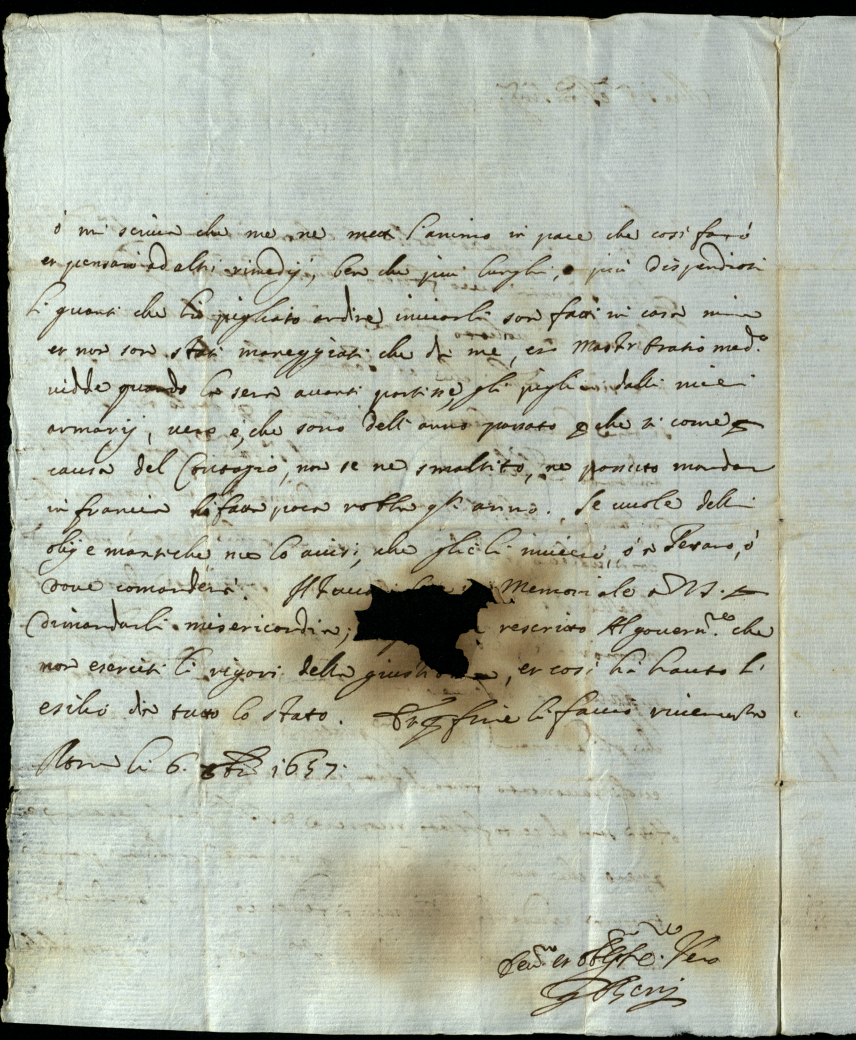 ò mi scriva che me ne metta l'animo in pace che così farò
et pensarò ad altri rimedij, ben che più lunghi, e più dispendiosi
Li guanti che hò pigliato ardire inviarli son fatti in casa mia
et non son stati maneggiati che da me, et Mastr med.º
vidde quando la sera avanti partisse, gli pigliai dalli miei
armarij, vero è, che sono dell'anno passato che si come
causa del Contagio, non se ne smaltito, ne possuto mandar
in francia fatta poca robba anno. Se vuole delli
oglj e mantiche me lo avisi, che glieli inviarò, ò a Pesaro, ò
dove comanderà. Memoriale a N.S.
dimandarli misericordia; rescritto Al govern.re che
non eserciti li rigori della giustitia, et così hà hauto l'
esilio da tutto lo stato. fine li faccio riverenza
Roma li 6. 1657.